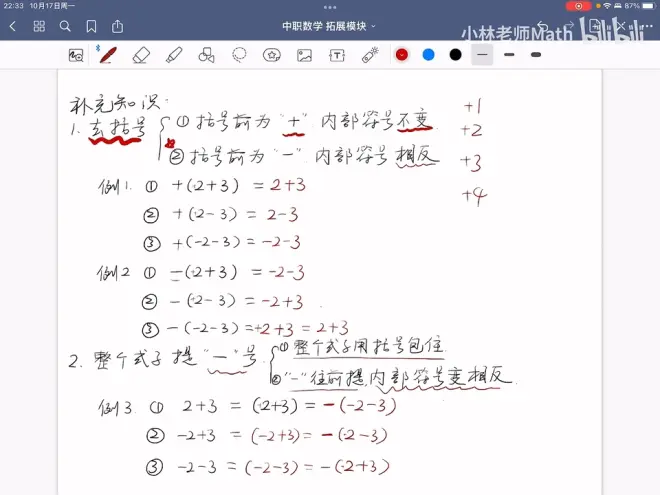 22:33 10月17日周一
87%
中职数学 拓展模块
小林老师Math bilibili
补充知识:
1. 去括号 ① 括号前为"+" 内部符号不变
② 括号前为"-" 内部符号相反
+1
+2
+3
+4
例1. ① +(2+3) = 2+3
② +(2-3) = 2-3
③ +(-2-3) = -2-3
例2 ① -(2+3) = -2-3
② -(2-3) = -2+3
③ -(-2-3) = +2+3 = 2+3
2. 整个式子提"-"号 ① 整个式子用括号包住
② "-"往前提,内部符号变相反
例3. ① 2+3 = (2+3) = -(-2-3)
② -2+3 = (-2+3) = -(2-3)
③ -2-3 = (-2-3) = -(2+3)